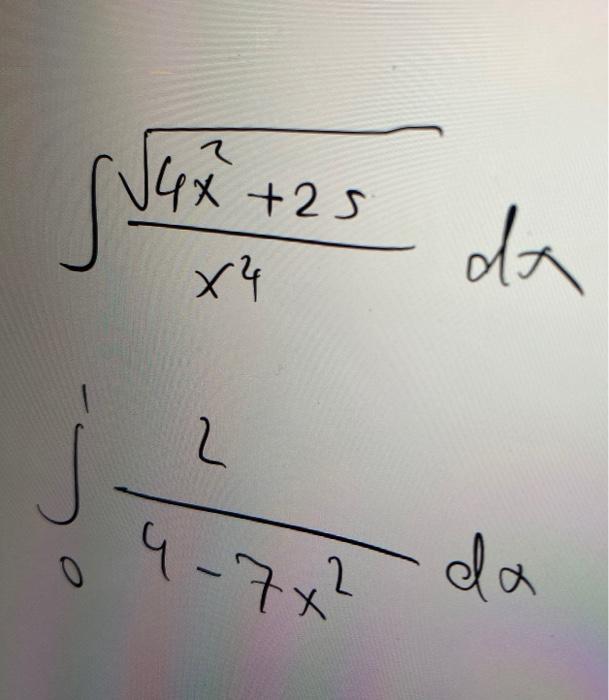 ∫ √(4x² + 25) / x⁴ dx
∫₀¹ 2 / (4 - 7x²) dx